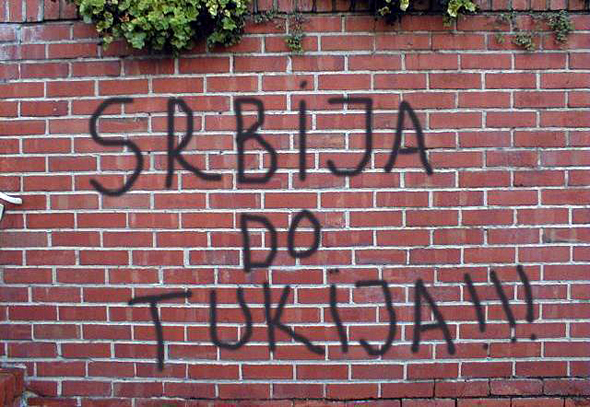 SRBIJA
DO
TUKIJA!!!